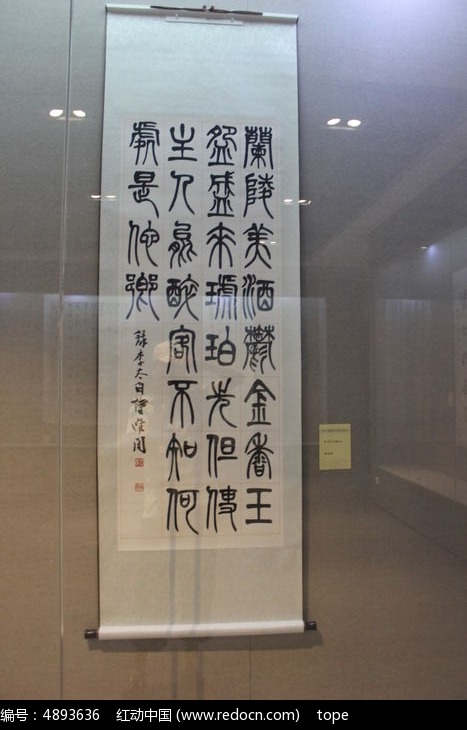 蘭陵美酒鬱金香玉
盌盛來琥珀光但使
主人能醉客不知何
處是他鄉
錄李太白詩
编号：4893636 红动中国 (www.redocn.com) tope